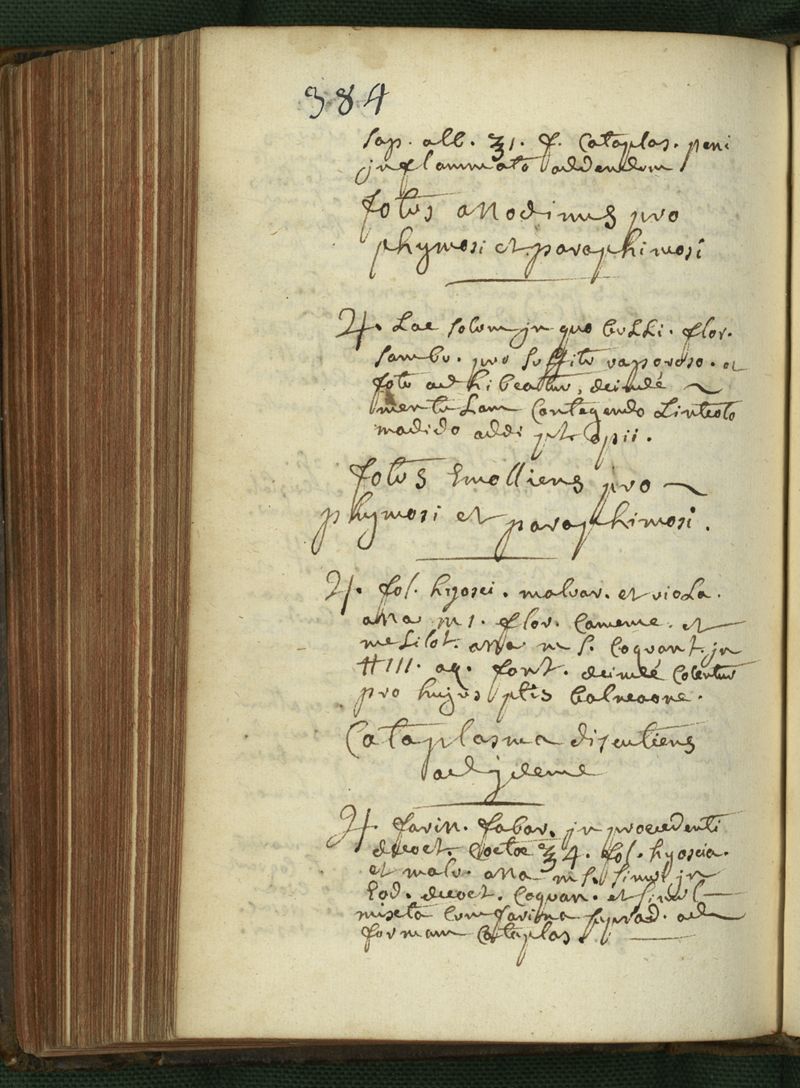 384
sap. alb. ʒ1. f. Cataplas. peni
jnflammato addendum
fotus anodinus pro
phymosi et paraphimosi
♃. Lac solum jn quo bulli. flor.
sambu. pro suffitu vaporoso. et
fotu adhibeatur, deindé
mentulam Contegendo Linteolo
madido addi pt. opii.
fotus Emolliens pro
phymosi et paraphimosi.
♃. fol. hyosci. malvar. et viola.
ana m 1. flor. Cameme. et
melilot. ana m s. Coquant. jn
℔III. aq. font. deindé Colentur
pro hujus ptis balneaone.
Cataplasma discutiens
ad jdem
♃. farin. fabar. jn procedenti
decoct. Coctae ʒ4. fol. hyoscia.
et malv. ana m s. simul jn
Eod. decoct. Coquan. et simul
mixta Cum farina suprad. ad
formam Cataplas.